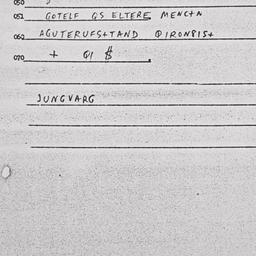 050
051 GOTELF QS ELTERE MENC+A
060 AGUTERUFS+TAND QIRON815+
070 + QI $
JUNGVARG